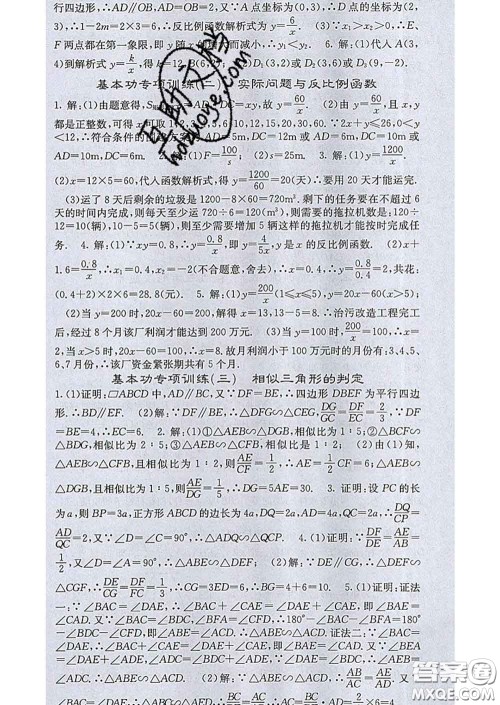 行四边形,∴AD//OB,AD=OB=2,又∵A点坐标为(0,3),∴D点的坐标为(2,
3),∴1-2m=2×3=6,∴反比例函数解析式为y=6/x. (3)∵x₁>x₂>0,∴E、
F两点都在第一象限,即y随x的增大而减小,∴y₁<y₂. 6. 解:(1)代入A(3,
4)到解析式y=k/x,得k=12,B(6,2);
基本功专项训练(二) 实际问题与反比例函数
1. 解:(1)由题意得,
都是正整数,可得x可取1,2,3,4,5,6,10,12,15,20,30,60.
<12,∴符合条件的
AD=10m,DC=6m. 2. 解:(1)F=100/s; (2)s=25m. 3. 解:(1)y=1200/x.
(2)x=12×5=60,代入函数解析式,得y=1200/60=20(天)∴要用20天才能运完.
(3)运了8天后剩余的垃圾是1200-8×60=720(m³. 剩下的任务要在不超过6
天的时间内完成,则每天至少运720÷6=120(m³),则需要的拖拉机数是:120÷
12=10(辆),10-5=5(辆),则至少需要增加5辆这样的拖拉机才能按时完成任
务. 4. 解:(1)∵xy=0.8,∴y=0.8/x,即y=4/5x,y是x的反比例函数. (2)x+
1.6=0.8/x,∴x₁=0.4,x₂=-2(不合题意,舍去),∴x=0.4,∴y=0.8/x=2,共花:
(0.4+2)×2×6=28.8(元). 5. 解:(1)y=200/x(1⩽x⩽5),y=20x-60(x>5);
(2)当y=200时,20x-60=200,解得x=13,13-5=8.∴治污改造工程完工
后,经过8个月该厂利润才能达到200万元. (3)当y=100时,200/x=100,x=
2,当x>5时,20x-60=100,x=8,故月利润小于100万元的时间有:3,4,5,
6,7月份,∴该厂资金紧张期共有5个月.
基本功专项训练(三) 相似三角形的判定
1.(1)证明:▱ABCD中,AD//BC,又∵DF=BE,∴四边形DBEF为平行四边
形,∴BD//EF. (2)解:∵DF//BE,∴△DFG∽△CEG,DG/GC=DF/EC=2/3,∴DF
=BE=4,∴EC=6. 2. 解:(1)①△AEB∽△CFB,相似比为1∶2;②△BCF∽
△BDG,相似比为2∶5;③△AEB∽△DGB,相似比为1∶5. (2)由(1)知,
△AEB∽△CFB,且相似比为1∶2,则有AE/CF=1/2,∴AE=3,∴CF=6;△AEB∽
△DGB,且相似比为1∶5,则AE/DG=1/5,∴DG=5AE=30. 3. 证明:设PC的长
为a,则BP=3a,正方形ABCD的边长为4a,DQ=2a,AD=4a,QC=2a,∴DQ/CP=
AD/QC=2,又∵∠D=∠QCP=90°,∴△ADQ∽△QCP. 4.(1)证明:∵DE/AB=AE/AB=
1/2,又∵∠D=∠A=90°,∴△ABE∽△DEF; (2)解:∵DE//CG,∴△DEF∽
△CGF,∴DE/CG=DF/FC=1/3,∴CG=3ED=6,∴BG=4+6=10. 5.(1)证明:证法
一:∵∠BAC=∠DAE,∴∠BAC+∠CAE=∠DAE+∠CAE,即∠BAE=
∠CAD. 又∵∠BAC=∠BDC,∠BFA=∠CFD,∴180°-∠BAC-∠BFA=180°
-∠BDC-∠CFD,即∠ABE=∠ACD. ∴△ABE∽△ACD. 证法二:∵∠BEA
=∠DAE+∠ADE,∠ADC=∠BDC+∠ADE,∠DAE=∠BDC,∴∠AEB=
∠ADC. ∴△ABE∽△ACD. (2)证明:∵△ABE∽△ACD,∴AB/AC=AE/AD,又∵∠BAC
答案圈
MXQE.COM